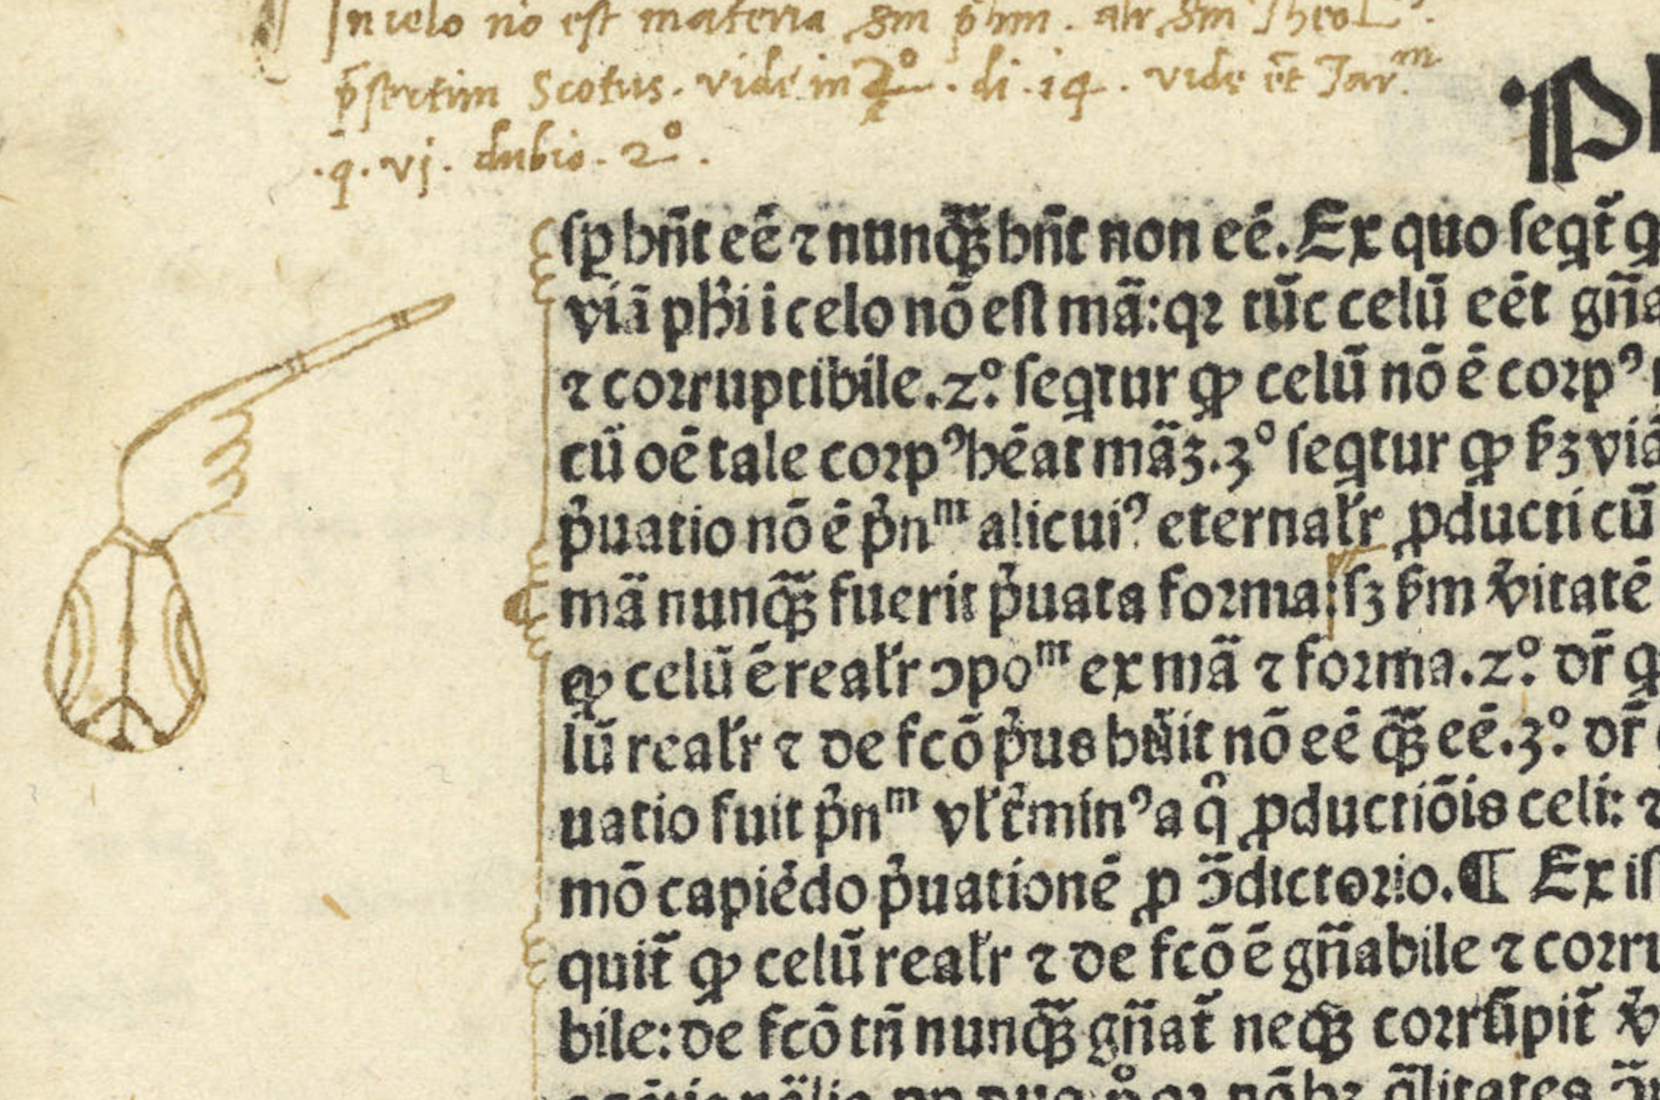 In celo nō est materia scḿ phm. alr scḿ Theol
p̄sertim Scotus. vide in 2º. di. 14. vide et̄ Jar.ᵐ
.q̄. vj. dubio. 2º.
Ph
sꝑ hn̄t eē ⁊ nunq̄ꝫ hn̄t non eē. Ex quo seqt̄ q
viā phi i celo nō est mā: qꝛ tūc celū eēt gn̄a
⁊ corruptibile. 2º. seqtur ꝙ celū nō ē corpꝰ
cū oē tale corpꝰ hēat māꝫ. 3º seqtur ꝙ ẜꝫ viā
p̓uatio nō ē p̓nᵐ alicuiꝰ eternalr̄ ꝓducti cū
mā nunq̄ꝫ fuerit p̓uata forma: sꝫ ẜm v̓itatē
ꝙ celū ē realr̄ ꝯpoᵐ ex mā ⁊ forma. 2º. dr̄ q
lū realr̄ ⁊ de fcō p̓us hūit nō eē q̄ꝫ eē. 3º. dr̄
uatio fuit p̓nᵐ vlt̓minꝰ a q̊ ꝓductiōis celi: ⁊
mō capiēdo p̓uationē ꝓ ꝯ̄dictorio. ¶ Ex is
quit̄ ꝙ celū realr̄ ⁊ de fcō ē gn̄abile ⁊ corru
bile: de fcō tn̄ nunq̄ꝫ gn̄at̄ neqꝫ corrūpit̄ v̓